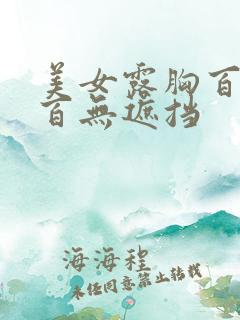 美女露胸百
百無遮挡
海海程
未经同意禁止转载